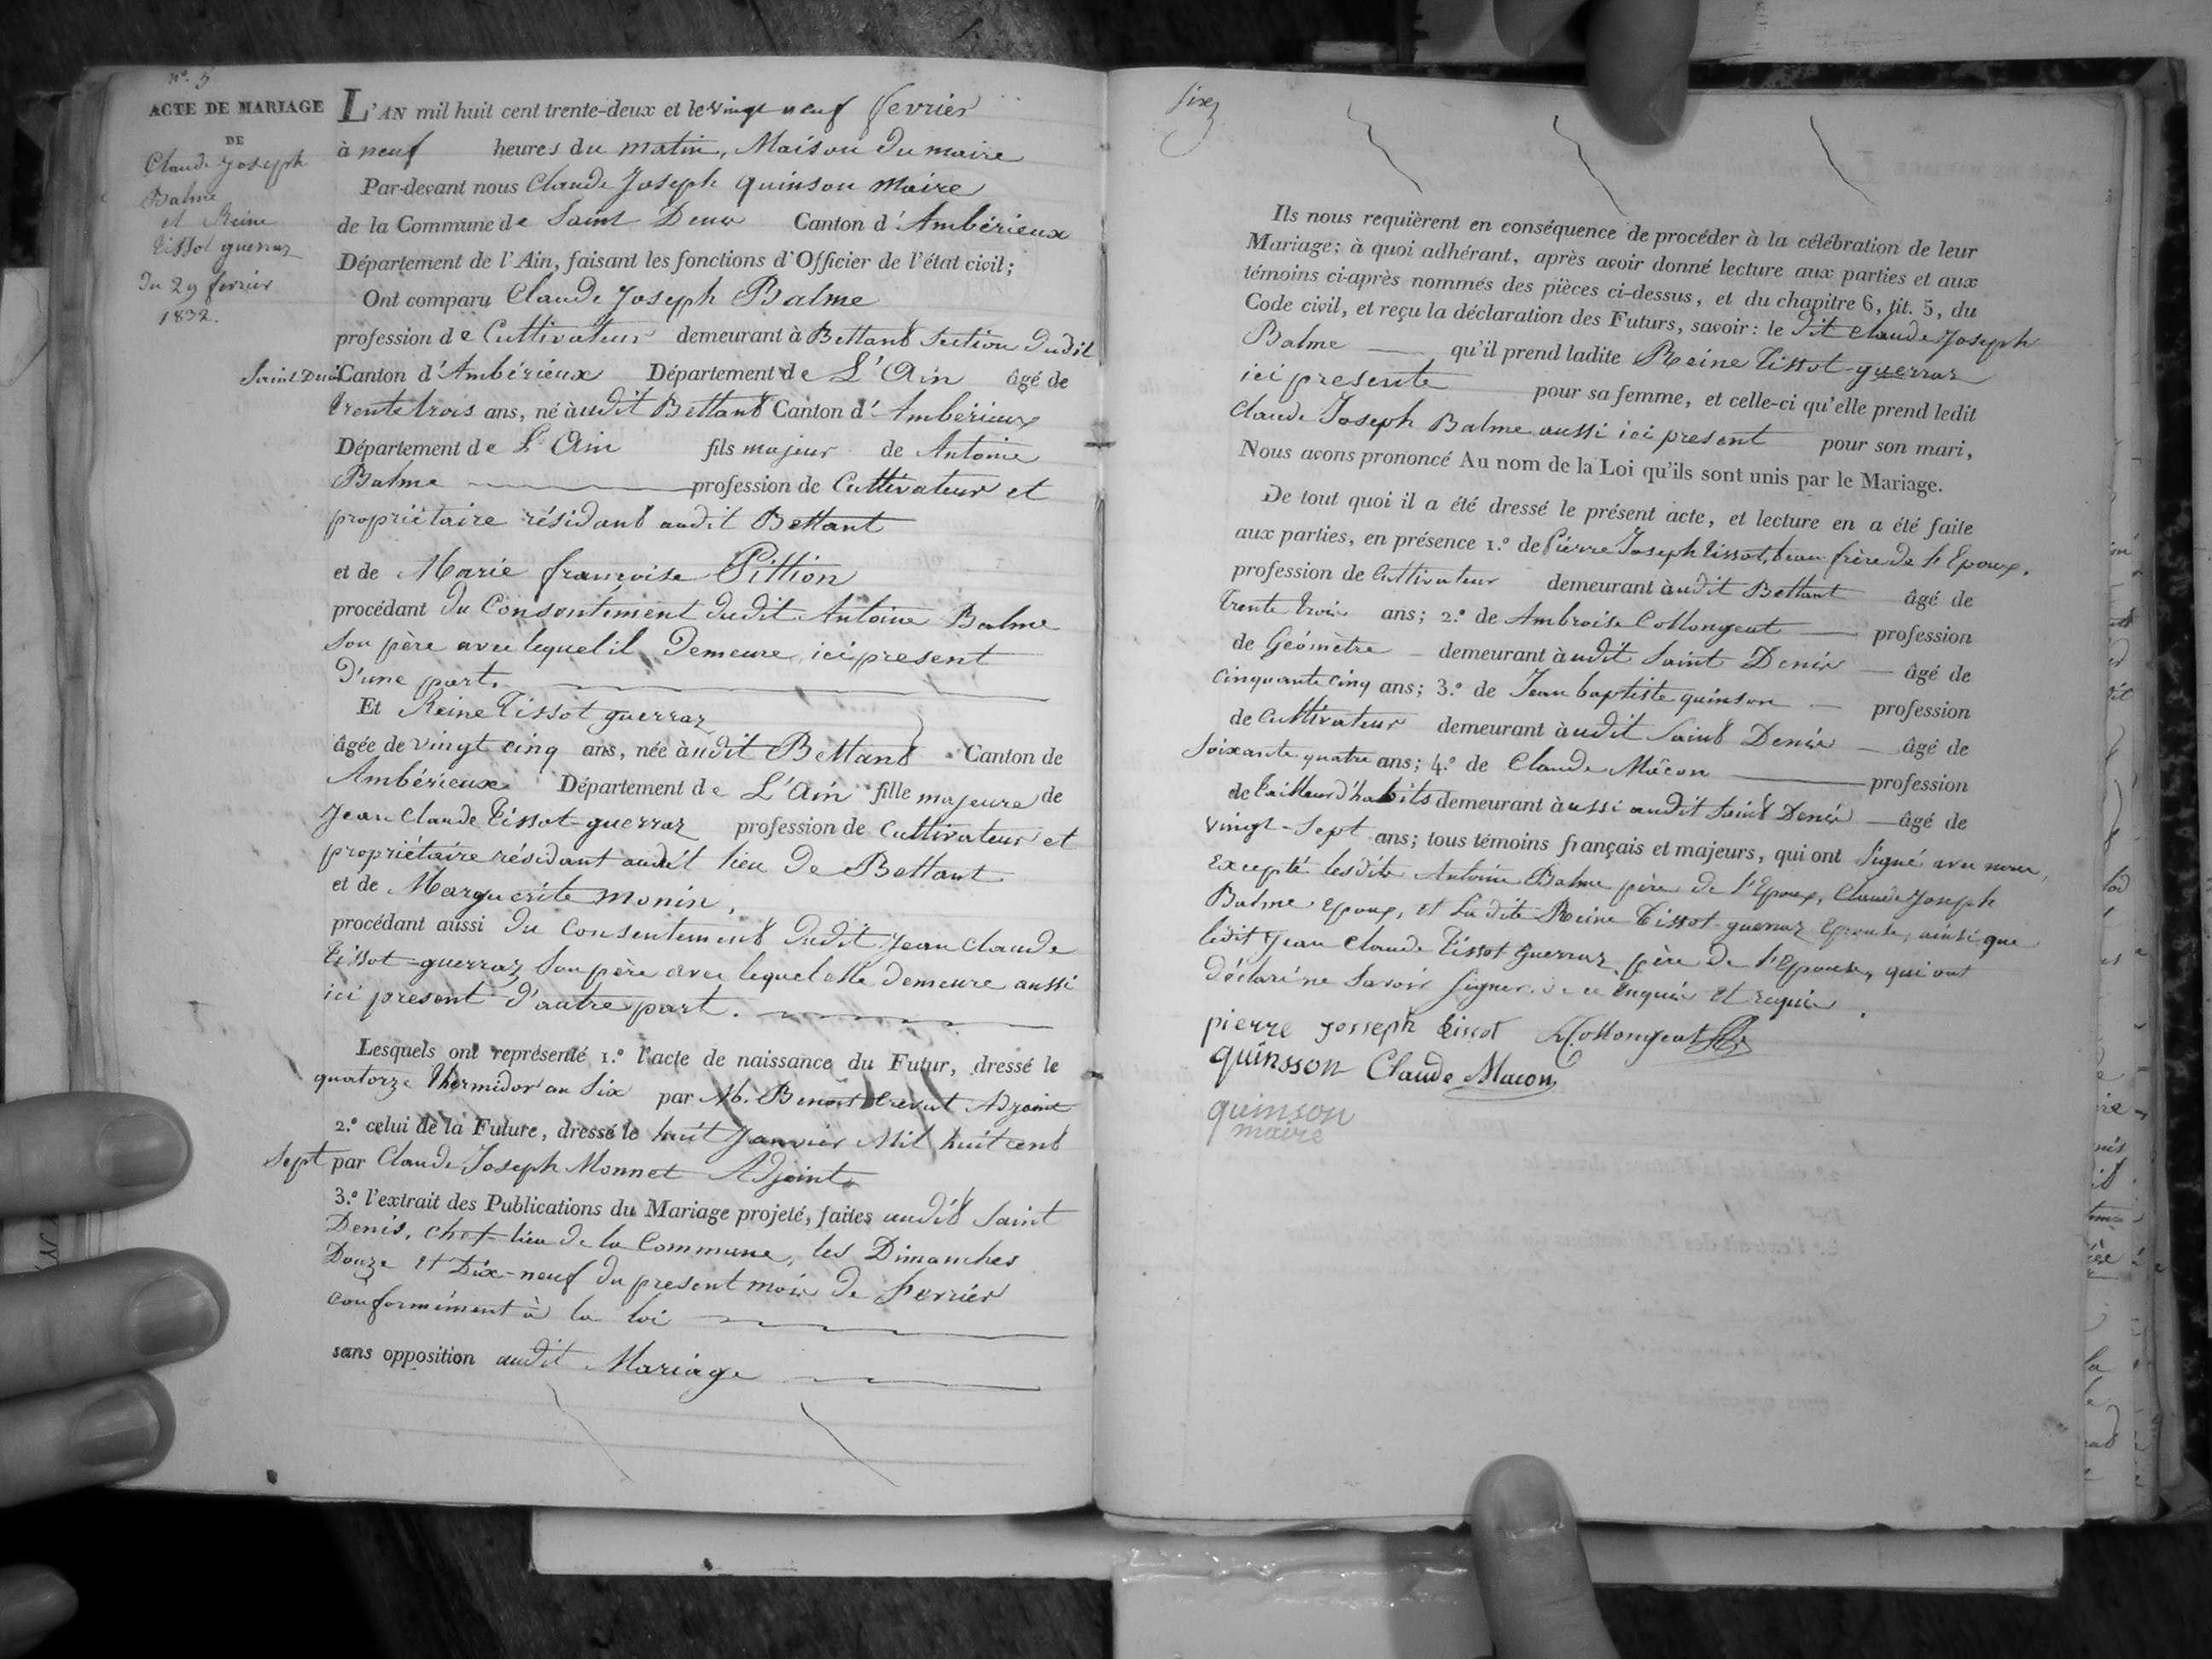 nº. 5
ACTE DE MARIAGE
DE
Claude Joseph
Balme
et Reine
Tissot guerraz
Du 29 fevrier
1832.
L'AN mil huit cent trente-deux et le vingt neuf fevrier
à neuf heures du matin, Maison du maire
Par-devant nous Claude Joseph quinson Maire
de la Commune de Saint Denis Canton d'Ambérieux
Département de l'Ain, faisant les fonctions d'Officier de l'état civil;
Ont comparu Claude Joseph Balme
profession de Cultivateur demeurant à Bettant Section dudit
Saint Denis Canton d'Ambérieux Département de L'Ain âgé de
trente trois ans, né à udit Bettant Canton d'Ambérieux
Département de L'Ain fils majeur de Antoine
Balme profession de Cultivateur et
propriétaire résidant audit Bettant
et de Marie françoise Pittion
procédant du Consentement dudit Antoine Balme
son père avec lequel il Demeure, ici present
D'une part.
Et Reine Tissot guerraz
âgée de vingt cinq ans, née à udit Bettant Canton de
Ambérieux Département de L'Ain fille majeure de
Jean Claude Tissot-guerraz profession de Cultivateur et
propriétaire résidant audit lieu de Bettant
et de Marguerite Monin,
procédant aussi du Consentement dudit Jean Claude
Tissot-guerraz son père avec lequel elle demeure aussi
ici present d'autre part.
Lesquels ont représenté 1.º l'acte de naissance du Futur, dressé le
quatorze thermidor an Six par M. Benoit Adjoint
2.º celui de la Future, dressé le huit Janvier Mil huit cent
Sept par Claude Joseph Monnet Adjoint
3.º l'extrait des Publications du Mariage projeté, faites audit Saint
Denis, chef-lieu de la Commune, les Dimanches
Douze et Dix-neuf du present mois de fevrier
conformément à la loi
sans opposition audit Mariage
Ils nous requièrent en conséquence de procéder à la célébration de leur
Mariage; à quoi adhérant, après avoir donné lecture aux parties et aux
témoins ci-après nommés des pièces ci-dessus, et du chapitre 6, tit. 5, du
Code civil, et reçu la déclaration des Futurs, savoir: le Dit Claude Joseph
Balme qu'il prend ladite Reine Tissot-guerraz
ici presente pour sa femme, et celle-ci qu'elle prend ledit
Claude Joseph Balme aussi ici present pour son mari,
Nous avons prononcé Au nom de la Loi qu'ils sont unis par le Mariage.
De tout quoi il a été dressé le présent acte, et lecture en a été faite
aux parties, en présence 1.º de Pierre Joseph Tissot, beau frère de l'Epoux,
profession de Cultivateur demeurant à udit Bettant âgé de
trente trois ans; 2.º de Ambroise Collongeat profession
de Géomètre demeurant à udit Saint Denis âgé de
cinquante cinq ans; 3.º de Jean baptiste quinson profession
de Cultivateur demeurant à udit Saint Denis âgé de
soixante quatre ans; 4.º de Claude Mâcon profession
de tailleur d'habits demeurant à ussi audit Saint Denis âgé de
vingt-Sept ans; tous témoins français et majeurs, qui ont Signé avec nous,
excepté lesdits Antoine Balme père de l'Epoux, Claude Joseph
Balme epoux, et la dite Reine Tissot-guerraz Epouse, ainsi que
ledit Jean Claude Tissot Guerraz père de l'Epouse, qui ont
déclaré ne savoir signer de ce enquis et requis.
pierre Josseph tissot A. Collongeat
quinsson Claude Macon
quinson
maire